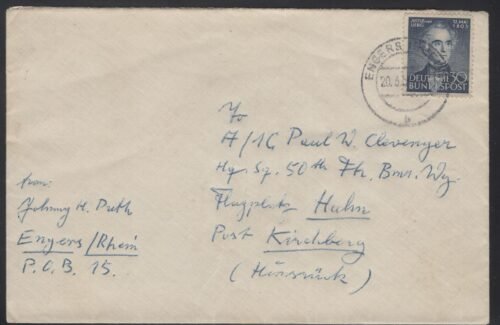 JUSTUS VON LIEBIG
12. MAI 1803
DEUTSCHE 30
BUNDESPOST
ENGERS
20.6.
b
To
A/1C Paul W. Clevenger
Hq. Sq. 50th Ftr. Bmr. Wg.
Flugplatz Hahn
Post Kirchberg
(Hunsrück)
from:
Johnny H.
Engers/Rhein
P.O.B. 15.